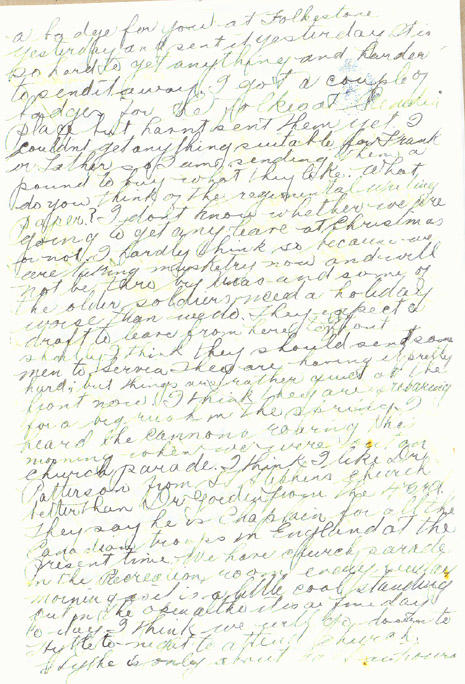 a badge for you at Folkestone
yesterday and sent it yesterday. It is
so hard to get anything and harder
to send it away. I got a couple of
badges for the folks at
place but havnt sent them yet. I
couldnt get anything suitable for Frank
or father so I am sending them a
pound to buy what they like. What
do you think of the regimental writing
paper? I don't know whether we are
going to get any leave at Christmas
or not. I hardly think so because we
are taking musketry now and will
not be thro by Xmas and some of
the older soldiers need a holiday
worse than we do. They expect a
draft to leave from here
shortly. I think they should send some
men to Servia. They are having it pretty
hard; but things are rather quiet at the
front now. I think they are
for a big rush in the spring. I
heard the cannons roaring the
morning when we were out on
church parade. I think I like Dr.
Patterson from St Stephens church
better than Dr Gordon from the
They say he is Chaplain for all the
Canadian troops in England at the
present time. We have church parade
in the Recreation room every Sunday
morning as it is a little cool standing
out in the open altho it is a fine day
to-day. I think we will go down to
Hythe to-night to attend church.
Hythe is only about